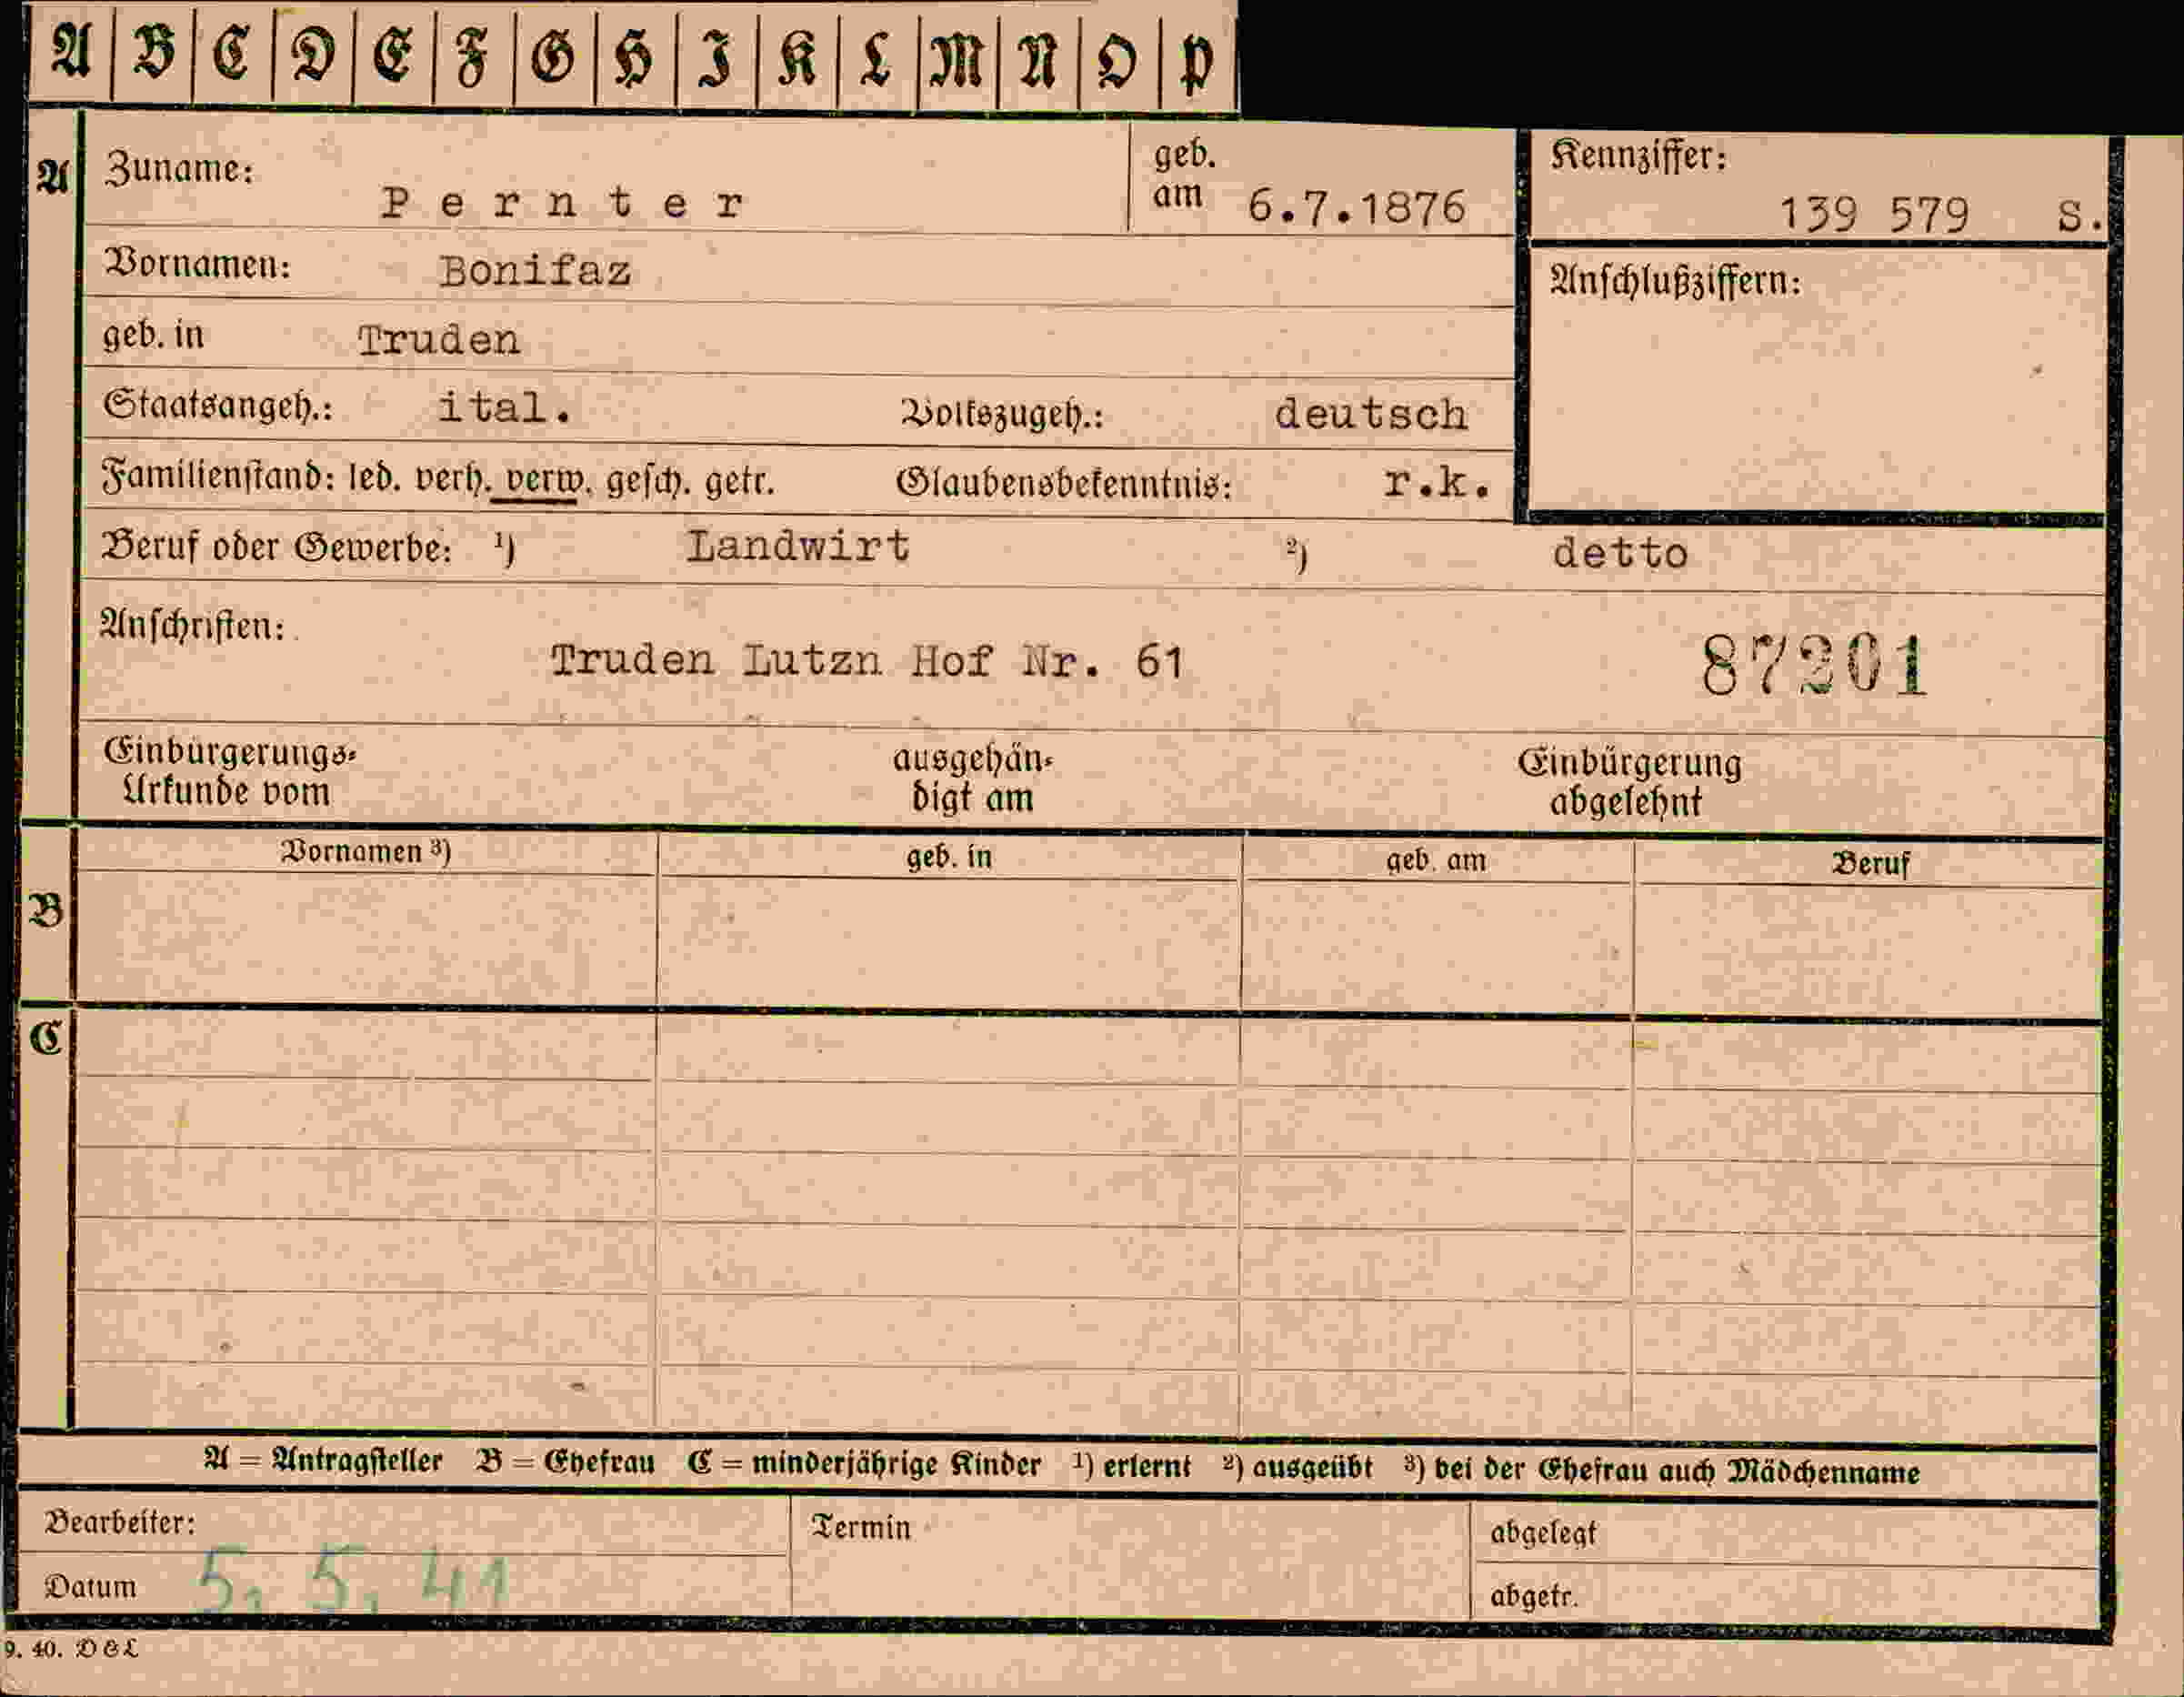 A B C D E F G H I K L M N O P
A Zuname: Pernter geb. am 6.7.1876 Kennziffer: 139 579 S.
Vornamen: Bonifaz Anschlußziffern:
geb. in Truden
Staatsangeh.: ital. Volkszugeh.: deutsch
Familienstand: led. verh. verw. gesch. getr. Glaubensbekenntnis: r.k.
Beruf oder Gewerbe: ¹) Landwirt ²) detto
Anschriften: Truden Lutzn Hof Nr. 61 87201
Einbürgerungs- ausgehän- Einbürgerung
Urkunde vom digt am abgelehnt
Vornamen ³) geb. in geb. am Beruf
B
C
A = Antragsteller B = Ehefrau C = minderjährige Kinder ¹) erlernt ²) ausgeübt ³) bei der Ehefrau auch Mädchenname
Bearbeiter: Termin abgelegt
Datum 5. 5. 41 abgetr.
9. 40. D&L